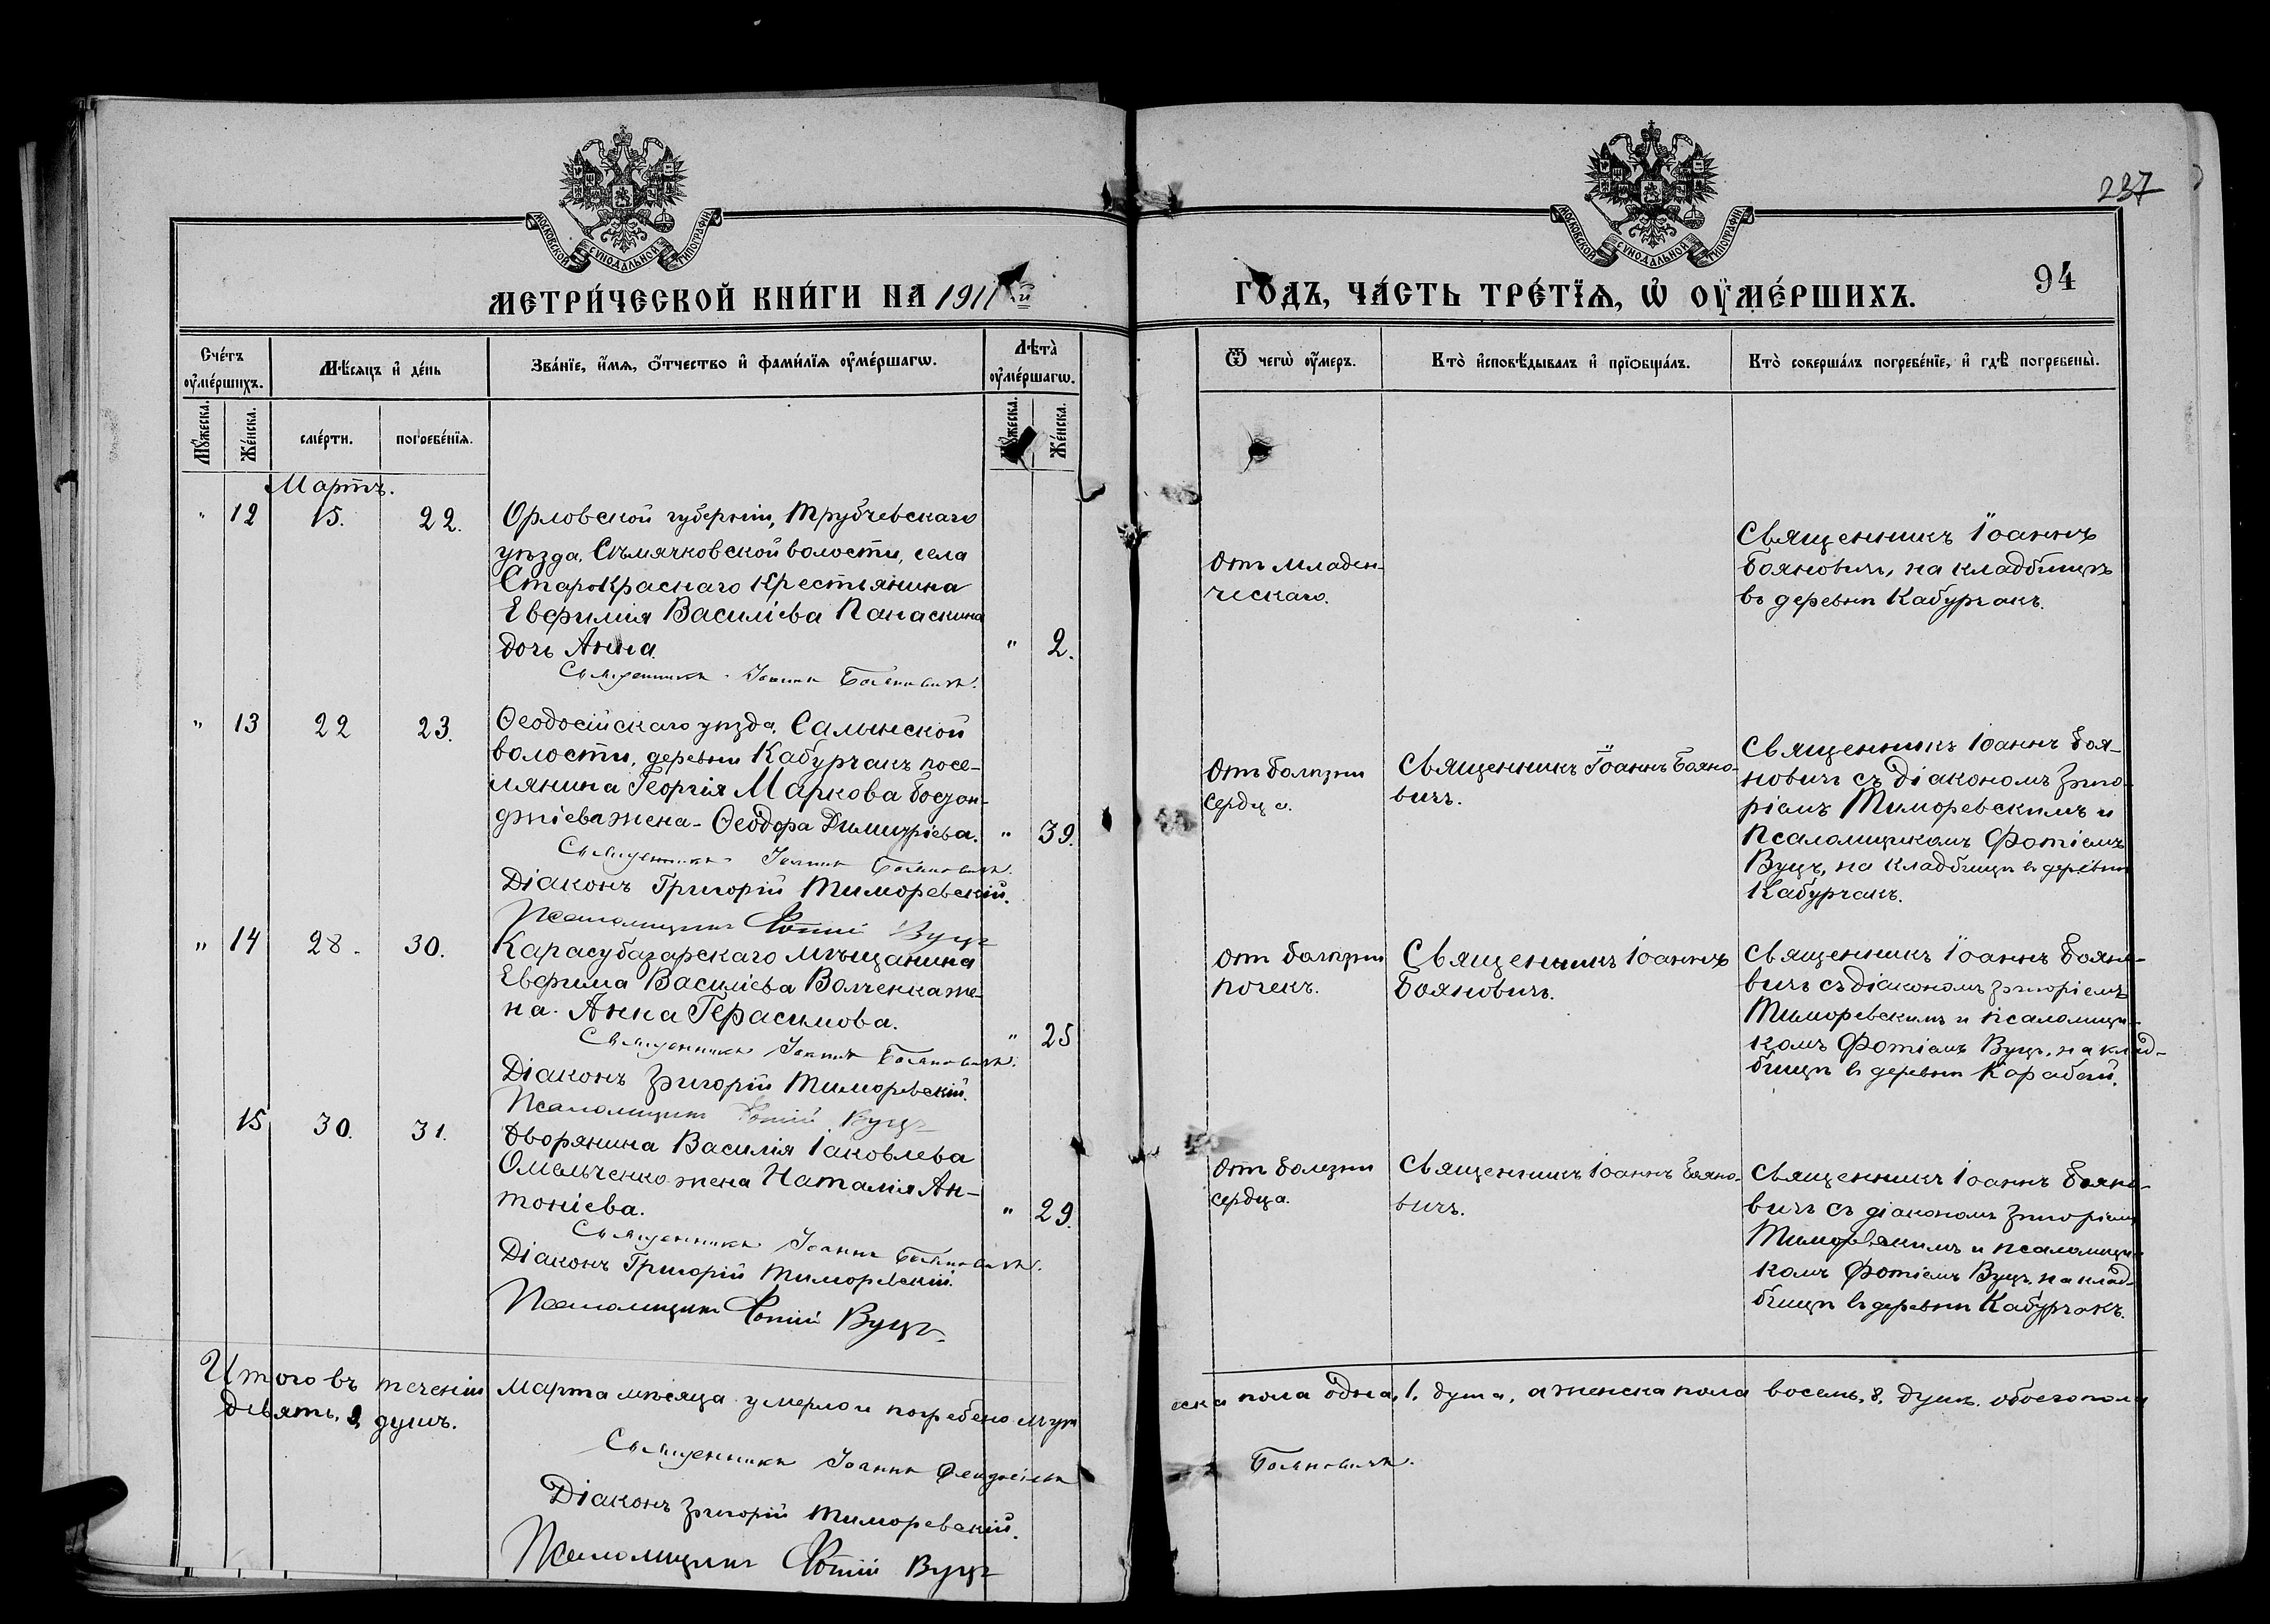 237
МОСКОВСКОЙ СѴНОДАЛЬНОЙ ТИПОГРАФІИ
МОСКОВСКОЙ СѴНОДАЛЬНОЙ ТИПОГРАФІИ
МЕТРИ́ЧЕСКОЙ КНИ́ГИ НА 1911й
ГО́ДЪ, ЧА́СТЬ ТРЕ́ТЇѦ, Ѡ҆ ОУ҆МЕ́РШИХЪ.
94
Сче́тъ оу҆ме́ршихъ.
Мѣ́сяцъ и҆ де́нь
Зва́нїе, и҆́мѧ, ѻ҆́тчество и҆ фами́лїѧ оу҆ме́ршагѡ.
Лѣ́та оу҆ме́ршагѡ.
Ѿ чегѡ̀ оу҆́меръ.
Кто̀ и҆сповѣ́дывалъ и҆ прїѡбща́лъ.
Кто̀ соверша́лъ погребе́нїе, и҆ гдѣ̀ погребены̀.
Мꙋ́жеска.
Же́нска.
сме́рти.
погребе́нїѧ.
Мꙋ́жеска.
Же́нска.
Мартъ.
" 12 15. 22.
Орловской губерніи, Трубчевскаго
уѣзда, Сѣмячковской волости, села
Старокраснаго Крестьянина
Евфимія Василіева Панаскина
дочь Анна " 2.
Священникъ Іоаннъ Бояновичъ.
Отъ младен-
ческаго.
Священникъ Іоаннъ
Бояновичъ, на кладбищѣ
въ деревнѣ Кабурчакъ.
" 13 22 23.
Ѳеодосійскаго уѣзда, Салынской
волости, деревни Кабурчакъ посе-
лянина Георгія Маркова
жена - Ѳеодора Димитріева. " 39.
Священникъ Іоаннъ Бояновичъ.
Діаконъ Григорій Тиморевскій.
Псаломщикъ Фотій Вуцъ
Отъ болѣзни
сердца.
Священникъ Іоаннъ Бояно-
вичъ.
Священникъ Іоаннъ Боя-
новичъ съ діакономъ Григо-
ріемъ Тиморевскимъ и
Псаломщикомъ Фотіемъ
Вуцъ, на кладбищѣ въ деревнѣ
Кабурчакъ.
" 14 28. 30.
Карасубазарскаго мѣщанина
Евфима Василіева Волченка же-
на. Анна Герасимова. " 25
Священникъ Іоаннъ Бояновичъ.
Діаконъ Григорій Тиморевскій.
Псаломщикъ Фотій Вуцъ
Отъ болѣзни
почекъ.
Священникъ Іоаннъ
Бояновичъ.
Священникъ Іоаннъ Бояно-
вичъ съ діакономъ Григоріемъ
Тиморевскимъ и псаломщи-
комъ Фотіемъ Вуцъ, на клад-
бищѣ въ деревнѣ Карабай.
15 30. 31.
Дворянина Василія Іаковлева
Омельченко жена Наталія Ан-
тоніева. " 29.
Священникъ Іоаннъ Бояновичъ.
Діаконъ Григорій Тиморевскій.
Псаломщикъ Фотій Вуцъ.
Отъ болезни
сердца.
Священникъ Іоаннъ Бояно-
вичъ.
Священникъ Іоаннъ Бояно-
вичъ съ діакономъ Григоріемъ
Тиморевскимъ и псаломщи-
комъ Фотіемъ Вуцъ, на клад-
бищѣ въ деревнѣ Кабурчакъ.
Итого въ теченіи Марта мѣсяца умерло и погребено муж
еска пола одна, 1, душа, а женска пола восемь, 8, душъ. обоего пола
девять, 9 душъ.
Священникъ Іоаннъ
Бояновичъ.
Діаконъ Григорій Тиморевскій.
Псаломщикъ Фотій Вуцъ